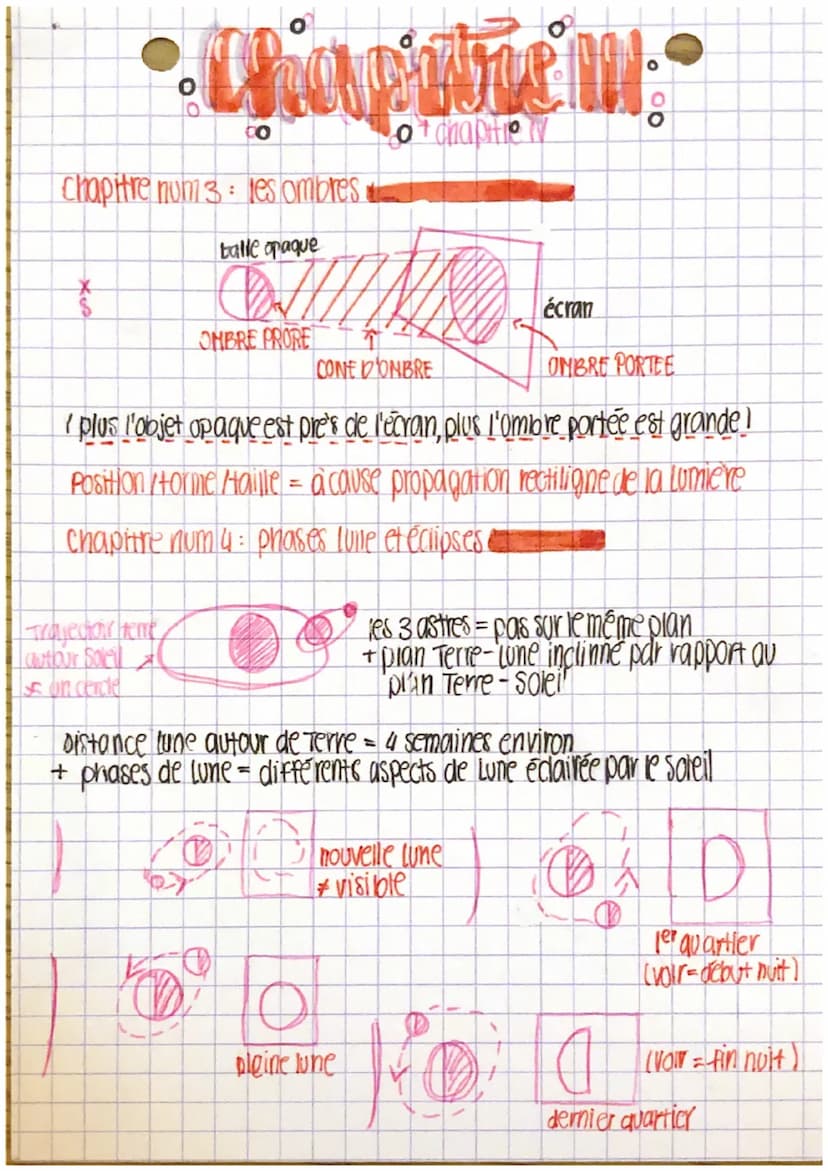 Chapitre III
+ chapitre IV
Chapitre num 3 : les ombres
balle opaque
X
S
écran
OMBRE PROPRE
CONE D'OMBRE
OMBRE PORTEE
! plus l'objet opaque est près de l'écran, plus l'ombre portée est grande !
Position / forme / taille = à cause propagation rectiligne de la lumière
Chapitre num 4 : phases lune et éclipses
Trajectoir terre
autour Soleil
≠ un cercle
les 3 astres = pas sur le même plan
+ plan Terre-Lune inclinné par rapport au
plan Terre - Soleil
Distance lune autour de Terre = 4 semaines environ
+ phases de Lune = différents aspects de Lune éclairée par le soleil
nouvelle lune
≠ visible
1er quartier
(voir = début nuit)
pleine lune
(voir = fin nuit)
dernier quartier